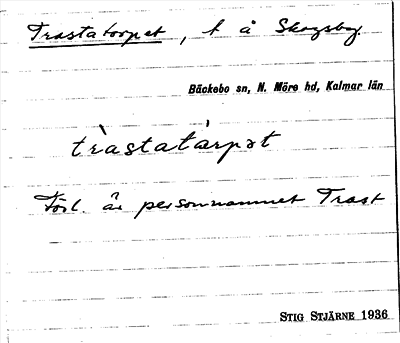 Trastatorpet, t å Skogsby
Bäckebo sn, N. Möre hd, Kalmar län
tràstatárpət
Förl. är personnamnet Trast
STIG STJÄRNE 1936